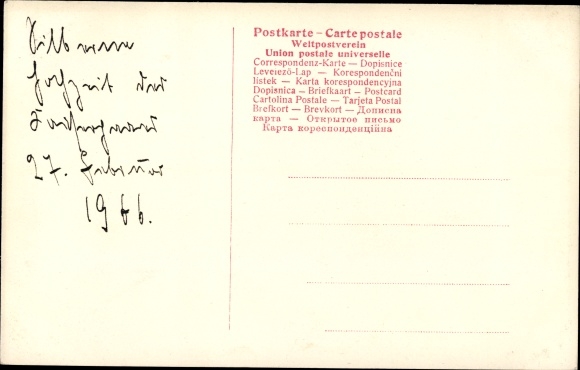 Silberne
Hochzeit des
27. Februar
1906.
Postkarte – Carte postale
Weltpostverein
Union postale universelle
Correspondenz-Karte — Dopisnice
Levelező-Lap — Korespondenční
listek — Karta korespondencyjna
Dopisnica — Briefkaart — Postcard
Cartolina Postale — Tarjeta Postal
Brefkort — Brevkort — Дописна
карта — Открытое письмо
Карта кореспонденційна